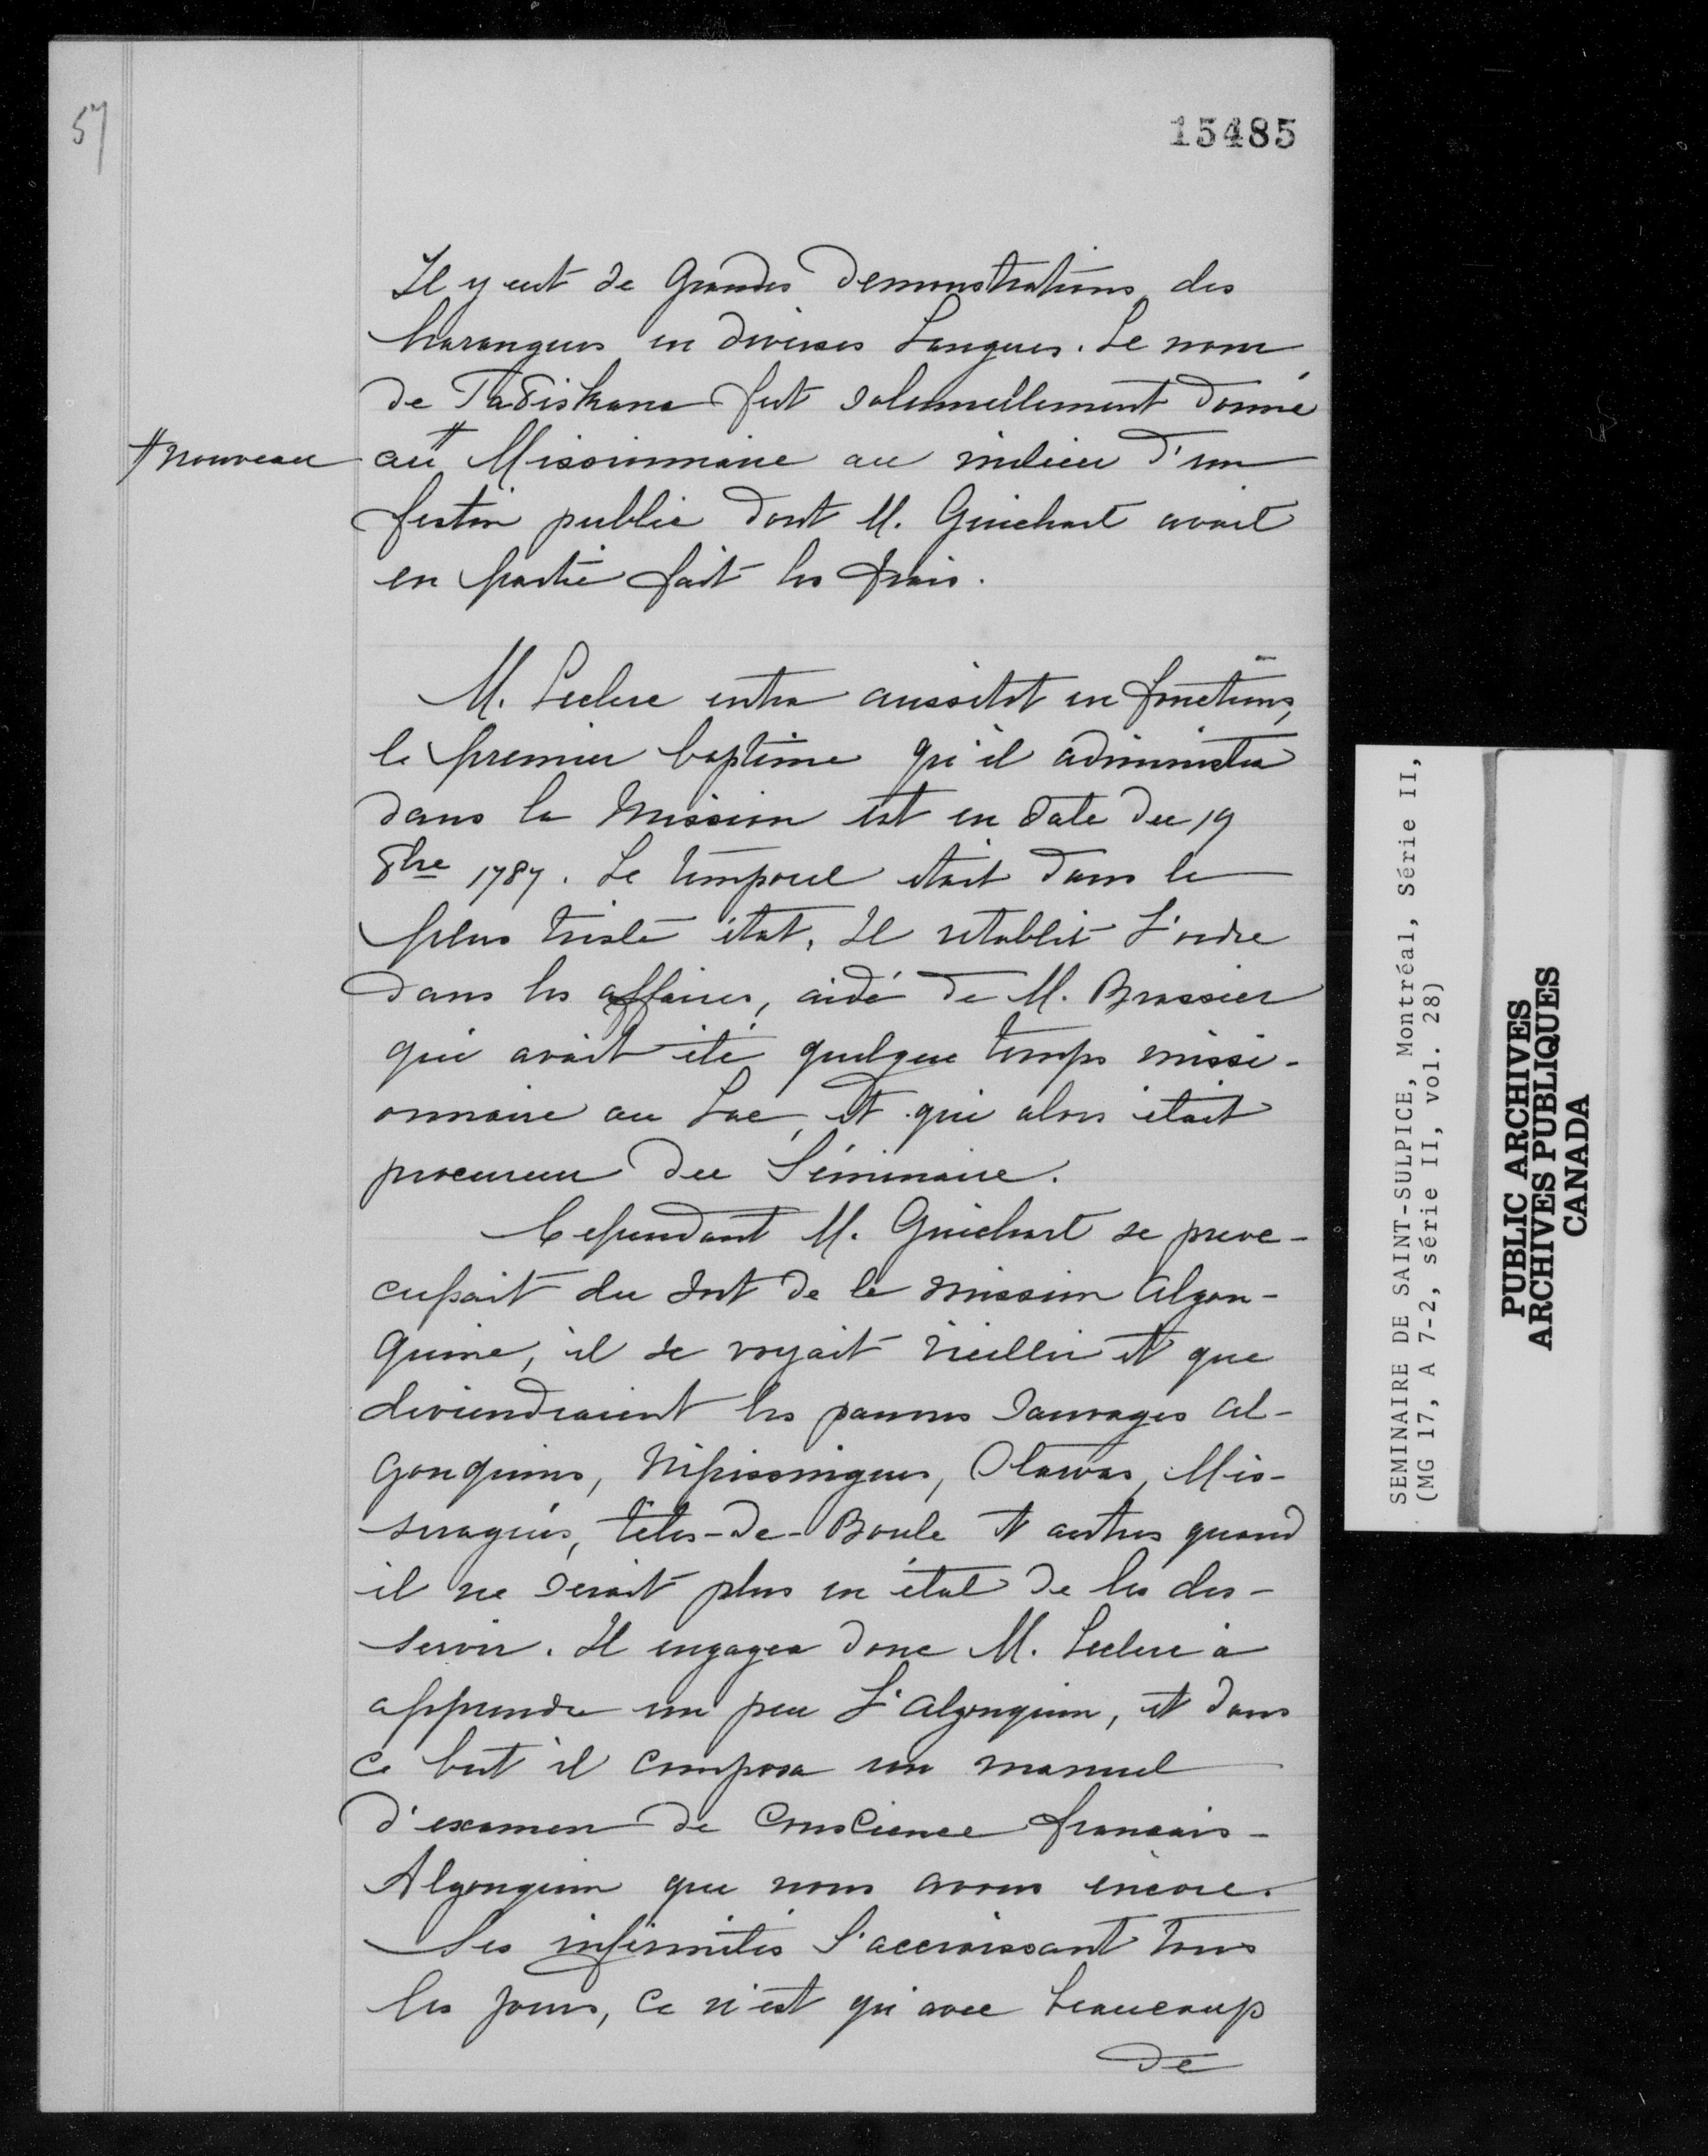 57
15485
Il y eut de Grandes Demonstrations, des
harangues en diverses Langues. Le nom
de Ta8iskana fut solennellement donné
# nouveau
au # Missionnaire au milieu d'un
festin public dont M. Guichart avait
en partie fait les frais.
M. Leclerc entra aussitot en fonctions,
le premier baptême qu'il administra
dans la Mission est en date du 19
8bre 1787. Le temporel était dans le
plus triste état, Il rétablit L'ordre
dans les affaires, aidé de M. Brassier
qui avait été quelque temps missi-
onnaire au Lac, et qui alors était
procureur du Séminaire.
Cependant M. Guichart se preoc-
cupait du sort de la mission Algon-
quine, il se voyait vieillir et que
deviendraient les pauvres Sauvages Al-
gonquins, Nipissingues, Otawas, Mis-
sisagués, têtes-de-Boule et autres quand
il ne serait plus en état de les des-
servir. Il engagea donc M. Leclerc à
apprendre un peu L'algonquin, et dans
ce but il composa un manuel
d'examen de Conscience francais-
Algonquin que nous avons encore.
Ses infirmités S'accroissant tous
les jours, ce n'est qu'avec beaucoup
de
SEMINAIRE DE SAINT-SULPICE, Montréal, Série II,
(MG 17, A 7-2, série II, vol. 28)
PUBLIC ARCHIVES
ARCHIVES PUBLIQUES
CANADA